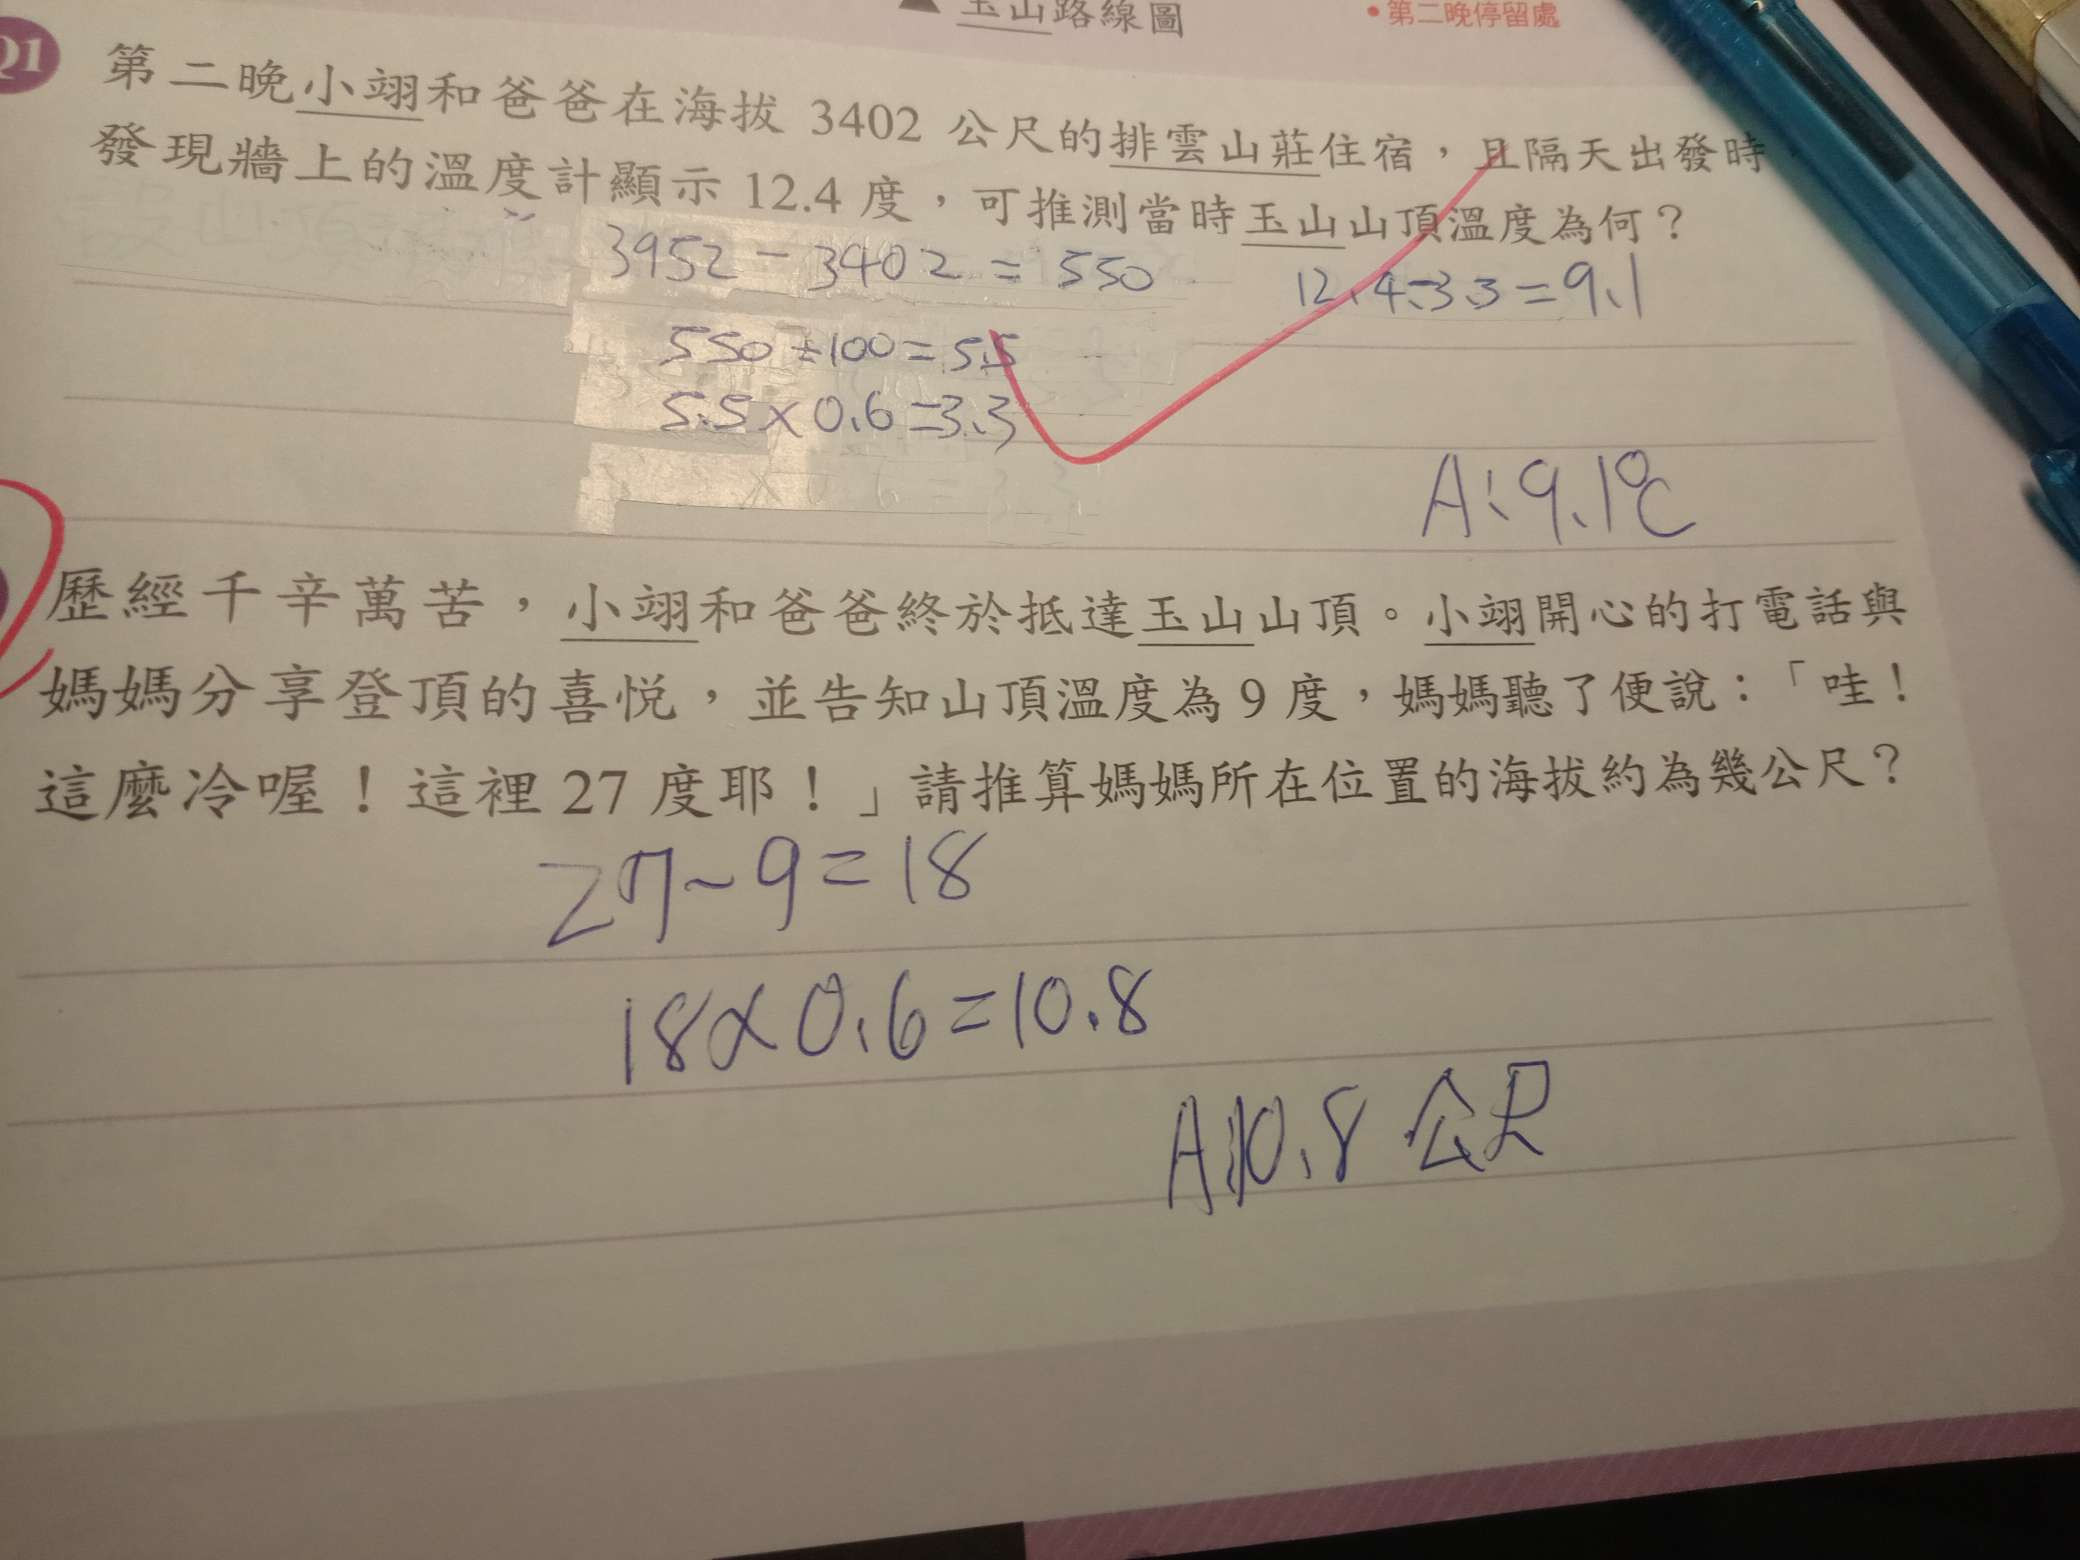 玉山路線圖
•第二晚停留處
Q1
第二晚小翊和爸爸在海拔 3402 公尺的排雲山莊住宿，且隔天出發時
發現牆上的溫度計顯示 12.4 度，可推測當時玉山山頂溫度為何？
3952-3402=550
12.4-3.3=9.1
550÷100=5.5
5.5×0.6=3.3
A:9.1℃
歷經千辛萬苦，小翊和爸爸終於抵達玉山山頂。小翊開心的打電話與
媽媽分享登頂的喜悅，並告知山頂溫度為 9 度，媽媽聽了便說：「哇！
這麼冷喔！這裡 27 度耶！」請推算媽媽所在位置的海拔約為幾公尺？
27-9=18
18×0.6=10.8
A:10.8 公尺